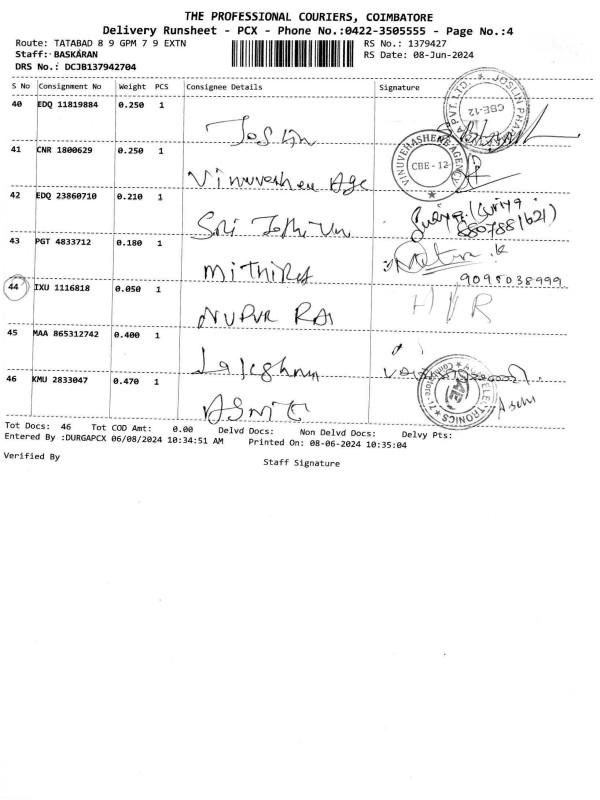 THE PROFESSIONAL COURIERS, COIMBATORE
Delivery Runsheet - PCX - Phone No.:0422-3505555 - Page No.:4
Route: TATABAD 8 9 GPM 7 9 EXTN
RS No.: 1379427
Staff: BASKARAN
RS Date: 08-Jun-2024
DRS No.: DCJB137942704
S No Consignment No Weight PCS Consignee Details Signature
40 EDQ 11819884 0.250 1 Joslin
JOSLIN CBE-12
41 CNR 1800629 0.250 1 Vinuveshene Age
VINUVEHASHENE AGENCY CBE - 12
42 EDQ 23860710 0.210 1 Sri
43 PGT 4833712 0.180 1 Mithiles
9095038999
44 IXU 1116818 0.050 1 NUPUR RAI
45 MAA 865312742 0.400 1
46 KMU 2833047 0.470 1
Tot Docs: 46 Tot COD Amt: 0.00 Delvd Docs: Non Delvd Docs: Delvy Pts:
Entered By :DURGAPCX 06/08/2024 10:34:51 AM Printed On: 08-06-2024 10:35:04
Verified By
Staff Signature